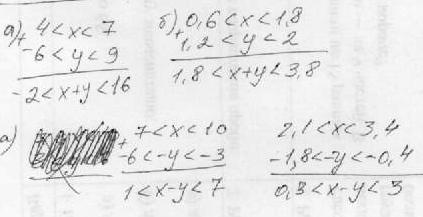 а) 4<x<7
+
-6<y<9
-2<x+y<16
б) 0,6<x<1,8
+
1,2<y<2
1,8<x+y<3,8
а)
7<x<10
+
-6<-y<-3
1<x-y<7
2,1<x<3,4
-1,8<-y<-0,4
0,3<x-y<3